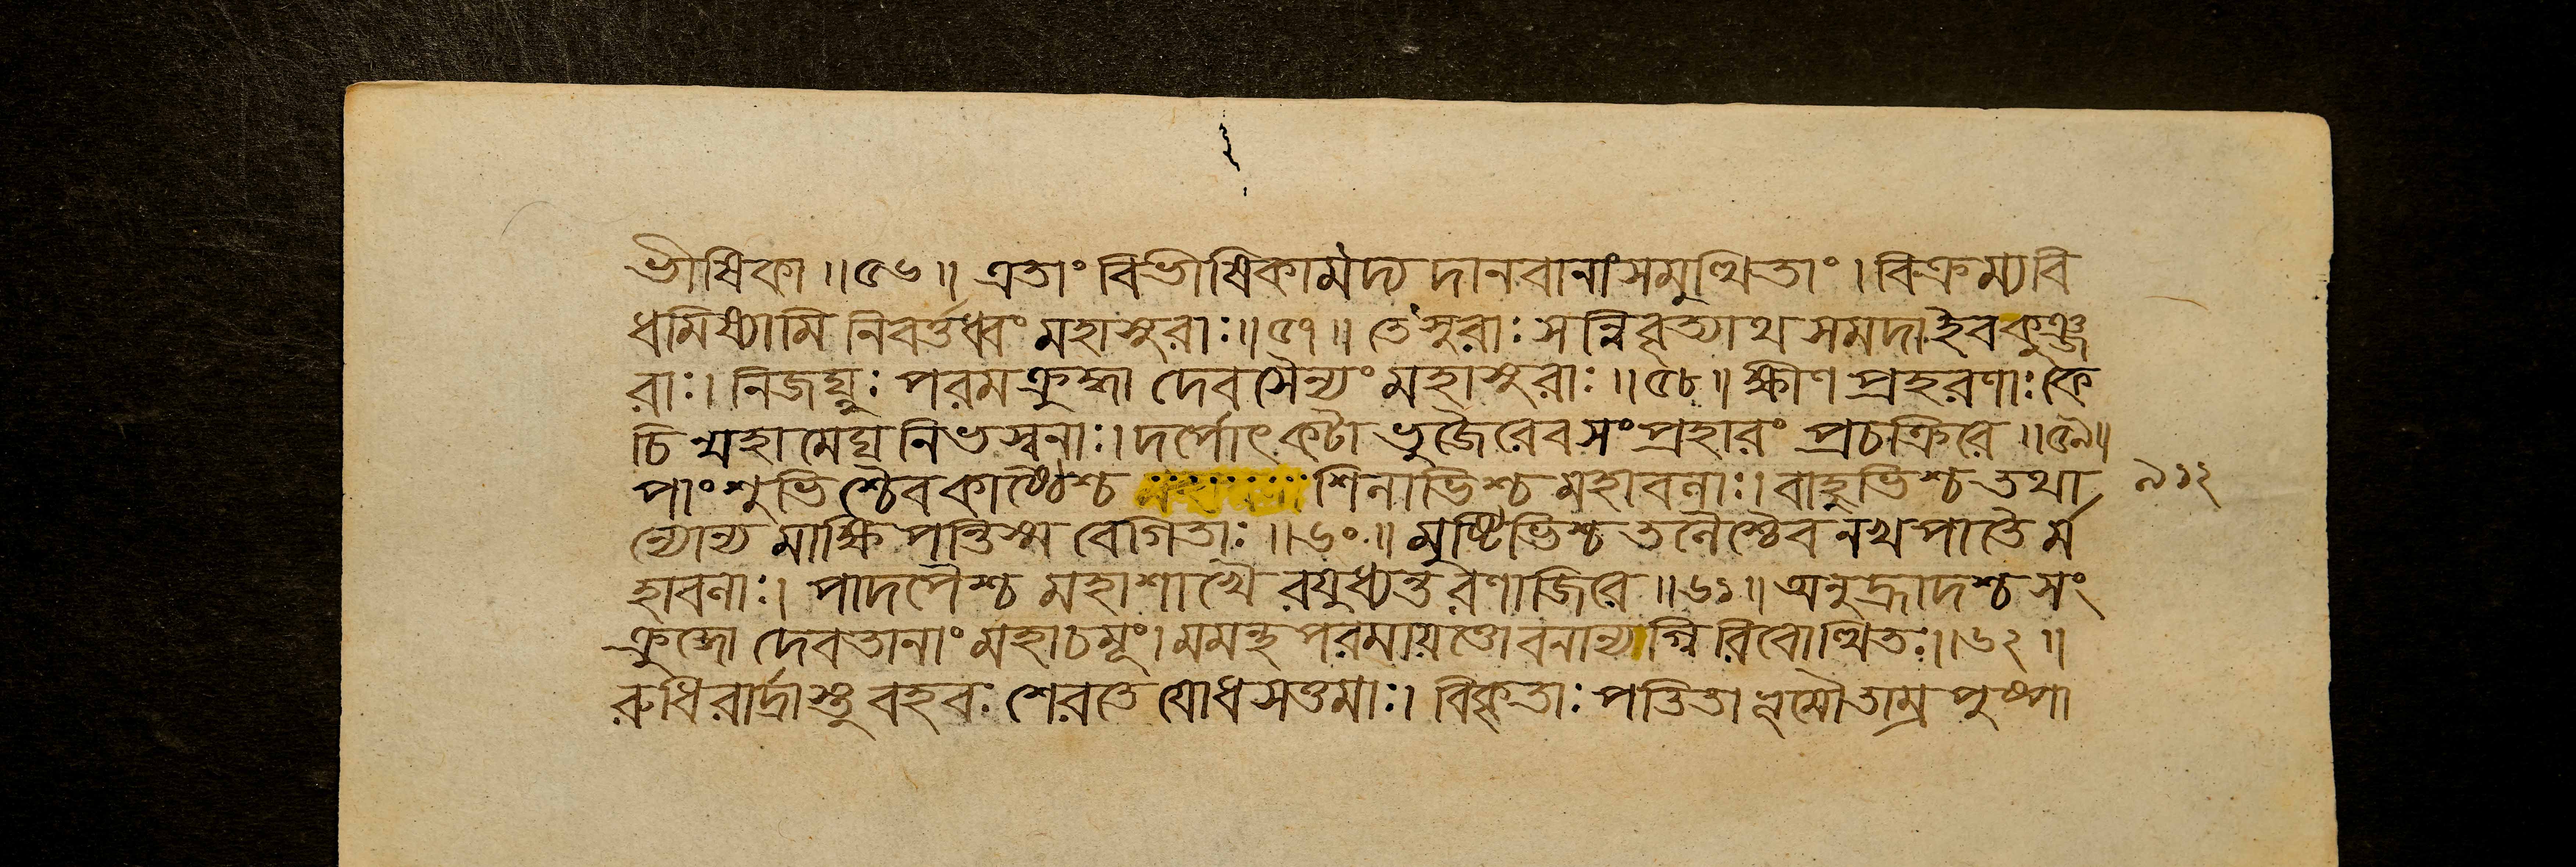 ভীষিকা ॥ ৫৬ ॥ এতাং বিভীষিকামদ্য দানবানাং সমুত্থিতাং । বিক্রম্য বি
ধমিষ্যামি নিবর্ত্তধ্বং মহাসুরাঃ ॥ ৫৭ ॥ তেঽসুরাঃ সন্নিবৃত্যাথ সমদা ইব কুঞ্জ
রাঃ । নিজঘ্নুঃ পরমক্রুদ্ধা দেবসৈন্যং মহাসুরাঃ ॥ ৫৮ ॥ ক্ষীণপ্রহরণাঃ কে
চিন্মহামেঘনিভস্বনাঃ । দর্পোৎকটা ভুজৈরেব সংপ্রহারং প্রচক্রিরে ॥ ৫৯ ॥
পাংশুভিশ্চৈব কাষ্ঠৈশ্চ শিলাভিশ্চ মহাবলাঃ । বাহুভিশ্চ তথা ৯১২
ন্যোন্য মাক্ষিপন্তি স্ম বেগিতাঃ ॥ ৬০ ॥ মুষ্টিভিশ্চ তলৈশ্চৈব নখপাতৈর্ম
হাবলাঃ । পাদপৈশ্চ মহাশাখৈ রযুধ্যন্ত রণাজিরে ॥ ৬১ ॥ অনুহ্লাদশ্চ সং
ক্রুদ্ধো দেবতানাং মহাচমূং । মমন্থ পরমায়ত্তো বনান্যগ্নিরিবোত্থিতঃ ॥ ৬২ ॥
রুধিরার্দ্রাস্তু বহবঃ শেরতে যোধসত্তমাঃ । বিকৃতাঃ পতিতা তাম্রপুষ্পা